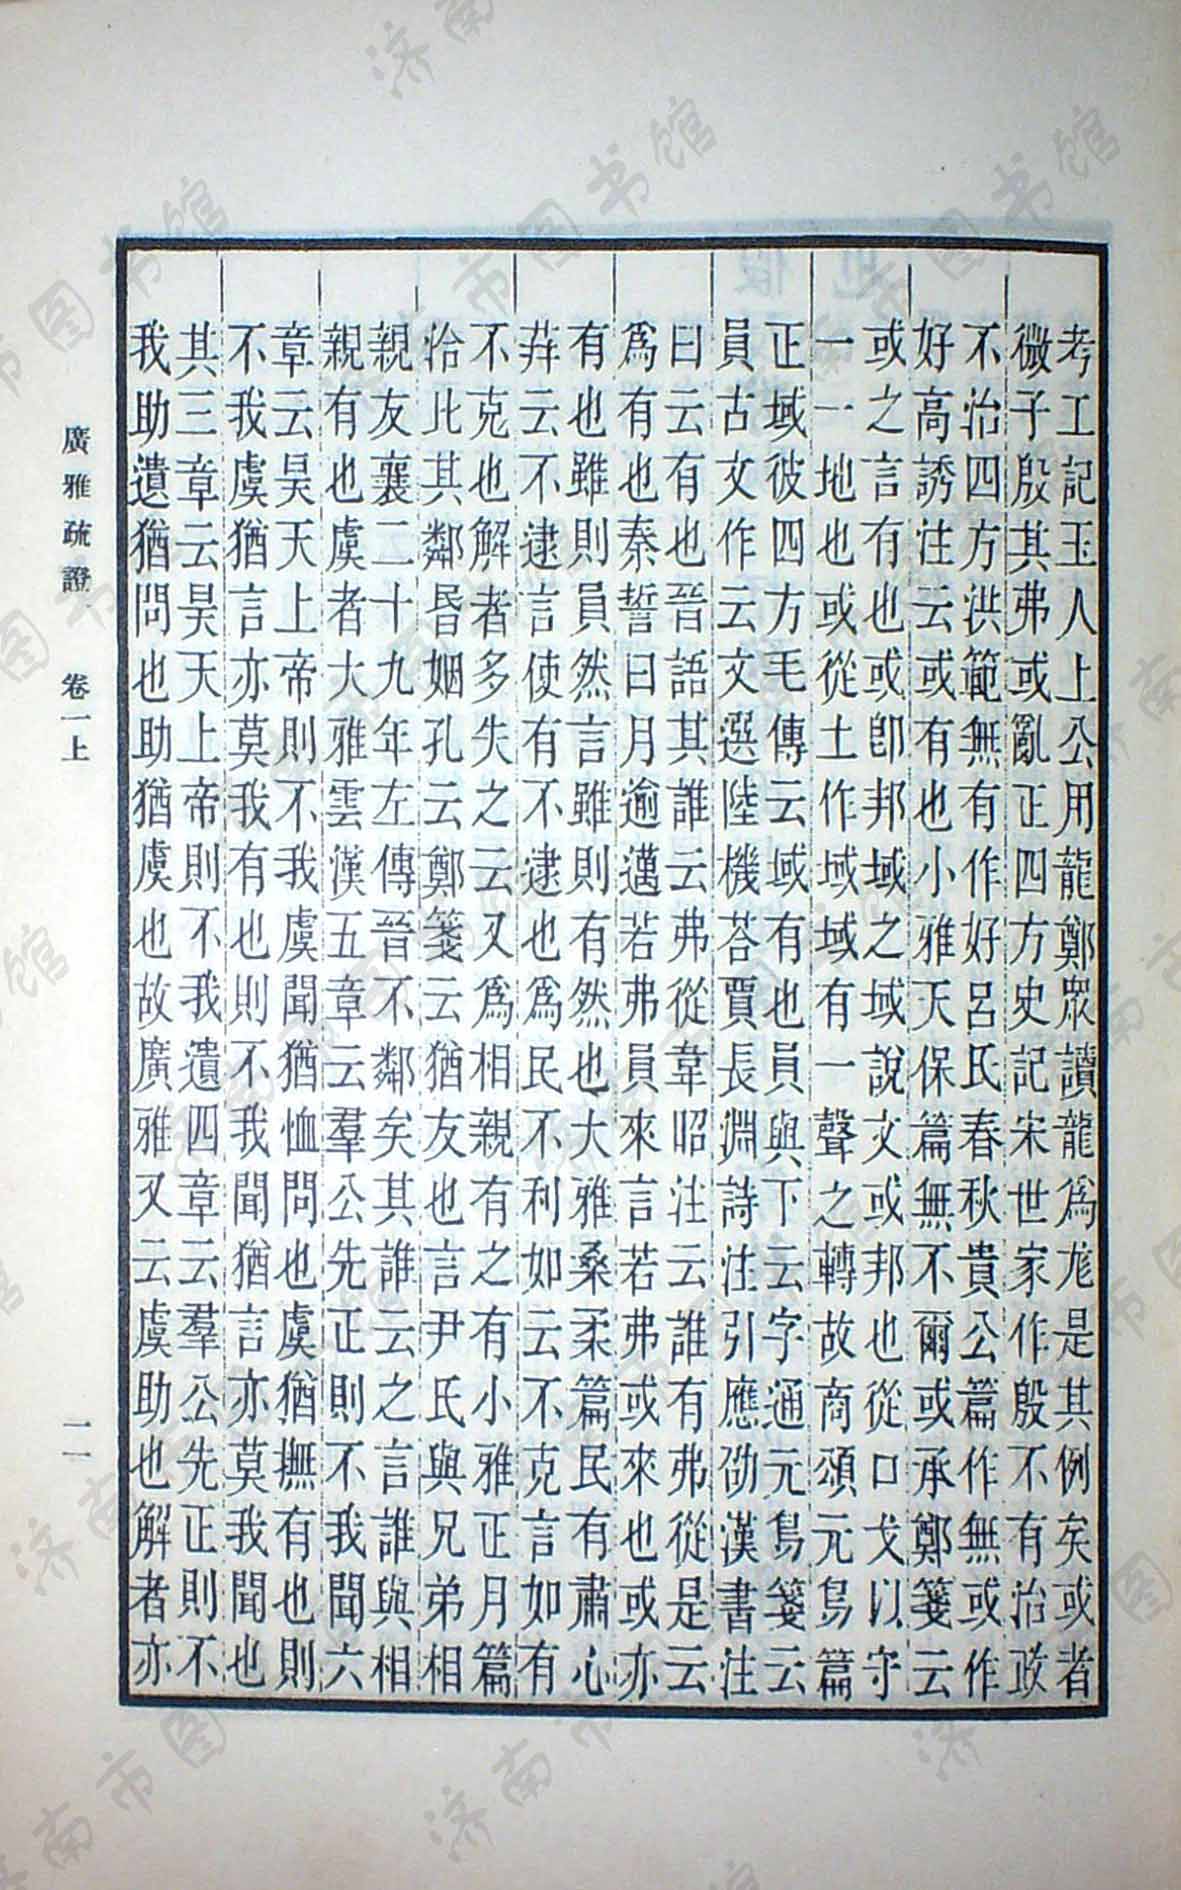 考工記玉人上公用龍鄭眾讀龍爲尨是其例矣或者
微子殷其弗或亂正四方史記宋世家作殷不有治政
不治四方洪範無有作好呂氏春秋貴公篇作無或作
好高誘注云或有也小雅天保篇無不爾或承鄭箋云
或之言有也或卽邦域之域說文或邦也從口戈以守
一一地也或從土作域域有一聲之轉故商頌元鳥篇
正域彼四方毛傳云域有也員與下云字通元鳥箋云
員古文作云文選陸機荅賈長淵詩注引應劭漢書注
曰云有也晉語其誰云弗從韋昭注云誰有弗從是云
爲有也秦誓曰月逾邁若弗員來言若弗或來也或亦
有也雖則員然言雖則有然也大雅桑柔篇民有肅心
荓云不逮言使有不逮也爲民不利如云不克言如有
不克也解者多失之云又爲相親有之有小雅正月篇
洽比其鄰昬姻孔云鄭箋云猶友也言尹氏與兄弟相
親友襄二十九年左傳晉不鄰矣其誰云之言誰與相
親有也虞者大雅雲漢五章云羣公先正則不我聞六
章云昊天上帝則不我虞聞猶恤問也虞猶撫有也則
不我虞猶言亦莫我有也則不我聞猶言亦莫我聞也
其三章云昊天上帝則不我遺四章云羣公先正則不
我助遺猶問也助猶虞也故廣雅又云虞助也解者亦
廣雅疏證 卷一上 一一
济南市图书馆